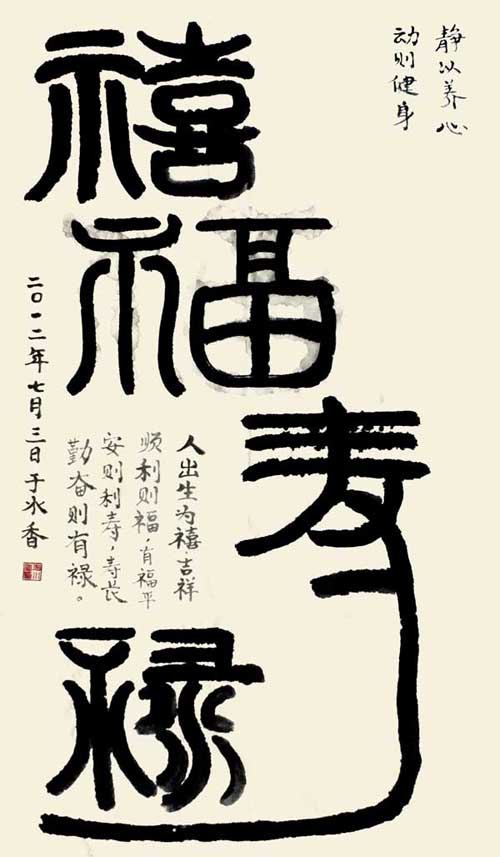 静以养心
动则健身
禧
福
寿
禄
人出生为禧，吉祥
顺利则福，有福平
安则利寿，寿长
勤奋则有禄。
二〇一二年七月三日于水香